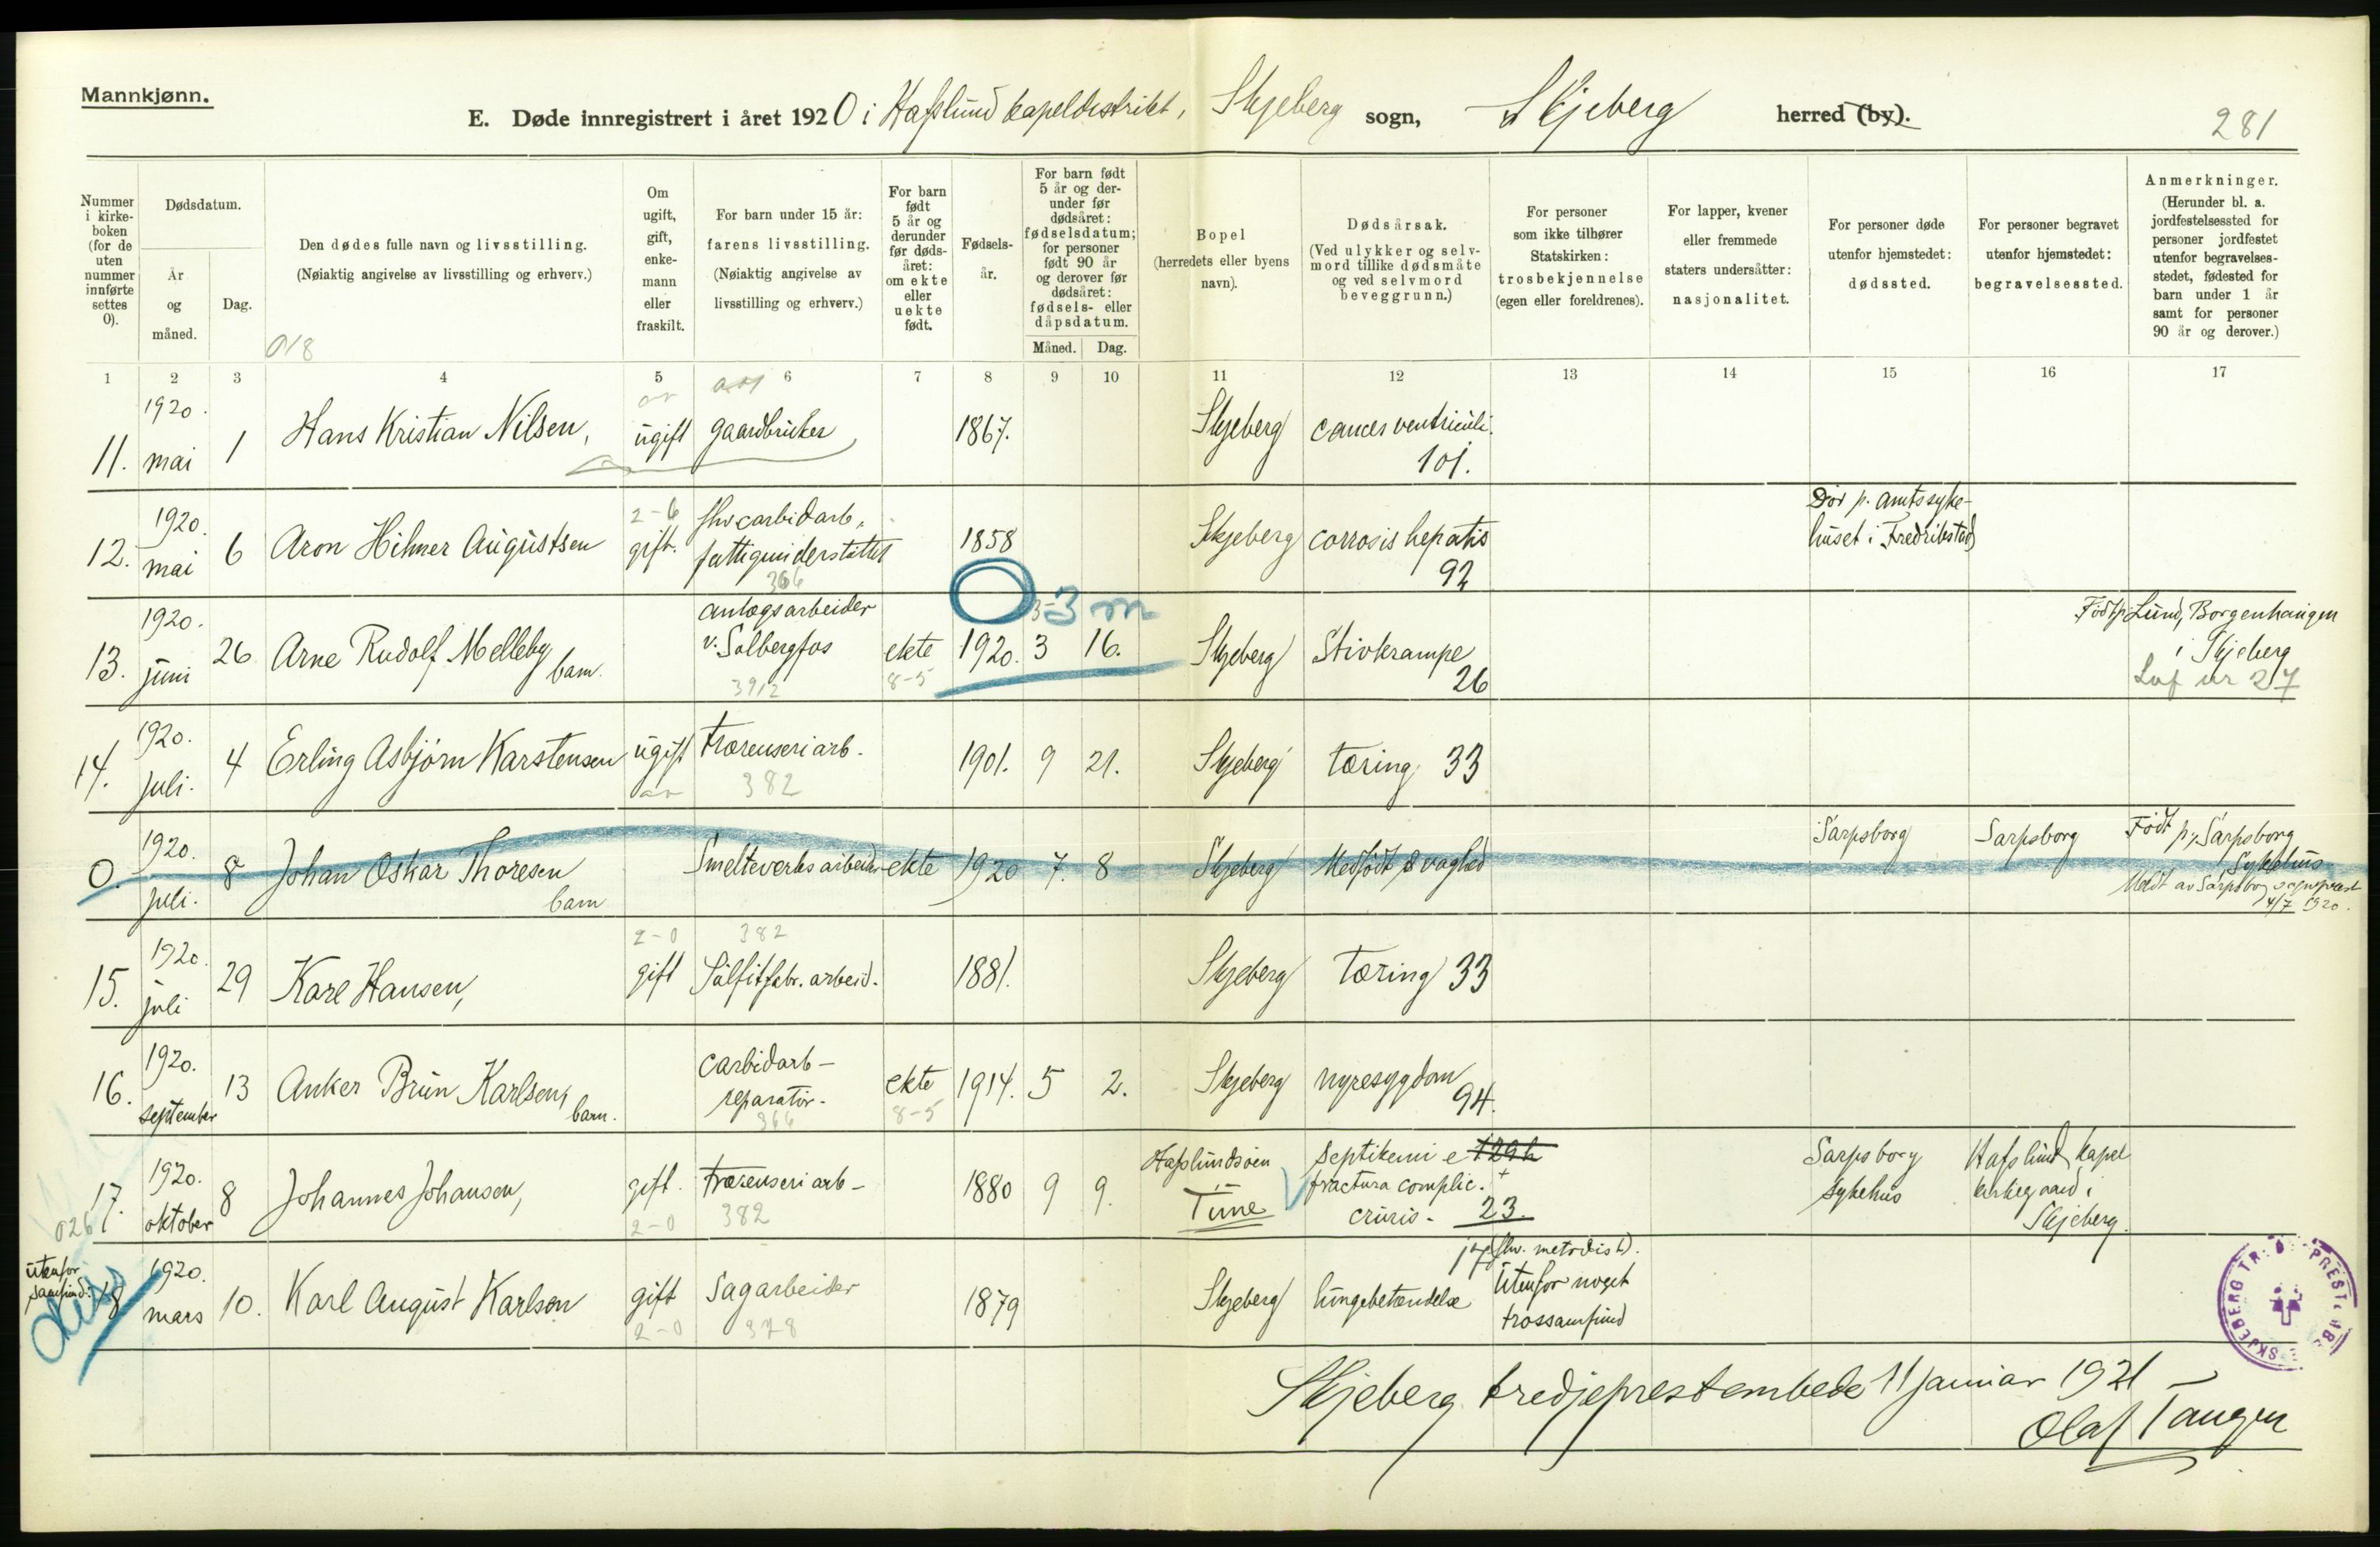 Mannkjønn.
E. Døde innregistrert i året 1920 i Hafslund kapeldistrikt, Skjeberg sogn, Skjeberg herred (by).
281
Nummer i kirke-boken (for de uten nummer innførte settes 0).
Dødsdatum.
År og måned.
Dag.
Den dødes fulle navn og livsstilling.
(Nøiaktig angivelse av livsstilling og erhverv.)
Om ugift, gift, enke-mann eller fraskilt.
For barn under 15 år: farens livsstilling.
(Nøiaktig angivelse av livsstilling og erhverv.)
For barn født 5 år og derunder før døds-året: om ekte eller uekte født.
Fødsels-år.
For barn født 5 år og der-under før dødsåret: fødselsdatum; for personer født 90 år og derover før dødsåret: fødsels- eller dåpsdatum.
Måned. Dag.
Bopel (herredets eller byens navn).
Dødsårsak.
(Ved ulykker og selv-mord tillike dødsmåte og ved selvmord beveggrunn.)
For personer som ikke tilhører Statskirken: trosbekjennelse (egen eller foreldrenes).
For lapper, kvener eller fremmede staters undersåtter: nasjonalitet.
For personer døde utenfor hjemstedet: dødssted.
For personer begravet utenfor hjemstedet: begravelsessted.
Anmerkninger.
(Herunder bl. a. jordfestelsessted for personer jordfestet utenfor begravelses-stedet, fødested for barn under 1 år samt for personer 90 år og derover.)
018
1 2 3 4 5 6 7 8 9 10 11 12 13 14 15 16 17
11. 1920. mai 1 Hans Kristian Nilsen, ugift gaardbruker 1867. Skjeberg cancer ventriculi. 101.
12. 1920. mai 6 Aron Hilmer Augustsen 2-6 gift. fhv carbidarb. fattigunderstøttet 366 1858 Skjeberg corrosis hepatis 92 Dør p. amtssyke-huset i Fredrikstad
13. 1920. juni 26 Arne Rudolf Melleby barn. anlægsarbeider v. Solbergfos 3912 ekte 8-5 0 3 m 1920. 3 16. Skjeberg Stivkrampe 26 Født p. Lund, Borgenhaugen i Skjeberg
nr 27
14. 1920. juli. 4 Erling Asbjørn Karstensen ugift træsenseriarb. 382 1901. 9 21. Skjeberg tæring 33
0. 1920. juli. 8 Johan Oskar Thoresen barn Smelteverksarbeider ekte 1920 7. 8 Skjeberg Medfødt svaghed Sarpsborg Sarpsborg Født p. Sarpsborg Sykehus
Meldt av Sarpsborg sogneprest 4/7 1920.
15. 1920. juli 29 Karl Hansen, 2-0 gift 382 Sulfitfabr. arbeid. 1881. Skjeberg Tæring 33
16. 1920. september 13 Anker Brun Karlsen, barn. carbidarb - reparatør. 366 ekte 8-5 1914. 5 2. Skjeberg nyresygdom 94.
026 17. 1920. oktober 8 Johannes Johansen, gift. 2-0 træsenseriarb - 382 1880 9 9. Hafslundsøen Tune Septikemi e fractura complic. cruris - 23. Sarpsborg sykehus Hafslund kapel kirkegaard i Skjeberg.
utenfor samfund: 18 1920. mars 10. Karl August Karlsen gift 2-0 Sagarbeider 378 1879 Skjeberg lungebetændelse fhv. metodist). Utenfor noget trossamfund
Skjeberg tredjeprestembede 11 januar 1921 -
Olaf Tangen